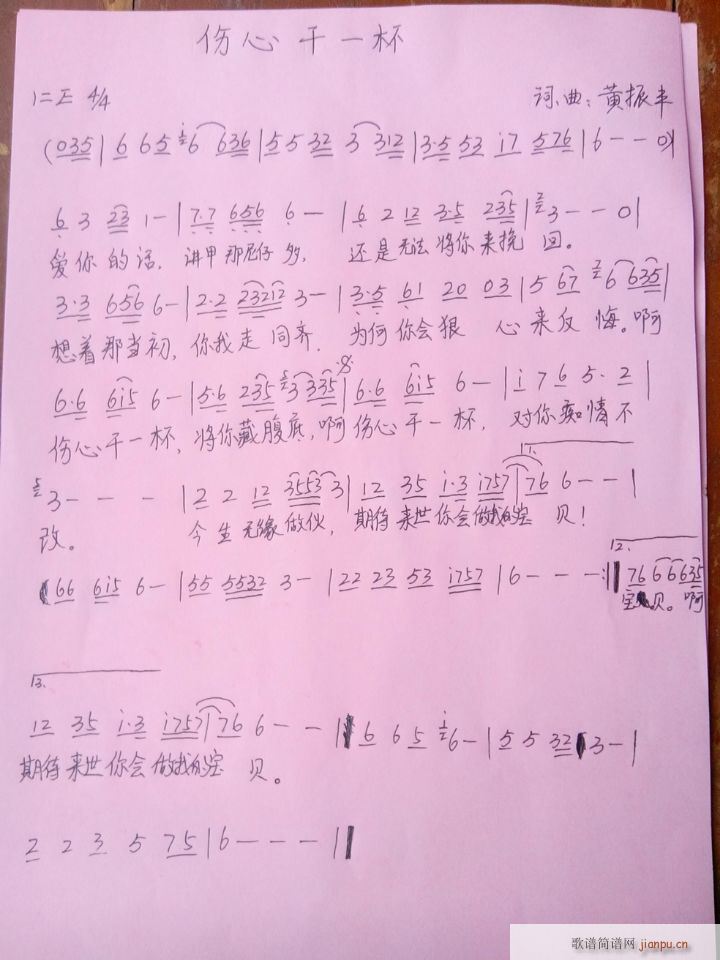 伤心干一杯
1=E 4/4 词.曲:黄振丰
(035|6 65 i6 636|5532 3 312|3·5 53 i7 576|6--0)
6 3 23 1-|7·7 656 6-|6 2 12 3·5 235|23--0|
爱你的话,讲甲那尼仔多,还是无法将你来挽回。
3·3 656 6-|2·2 23212 3-|3·5 61 20 03|5 67 26 635|
想着那当初,你我走同齐.为何你会狠心来反悔。啊
6·6 6i5 6-|5·6 235 53 335|6·6 6i5 6-|i 7 6 5· 2|
伤心干一杯,将你藏腹底,啊伤心干一杯,对你痴情不
1.
53---|2 2 12 35533|12 35 i·3 i757|76 6--|
改。今生无缘做伙,期待来世你会做我的宝贝!
2.
66 6i5 6-|55 5532 3-|22 23 53 i757|6---:|76 66635
宝贝。啊
3.
12 35 i·3 i757|76 6--|6 65 i6-|5 5 32 3-|
期待来世你会做我的宝贝。
2 2 3 5 75|6---||
歌谱简谱网 jianpu.cn